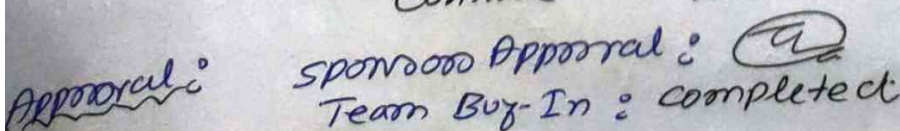 Approval: Sponsor Approval:
Team Buy-In: completed